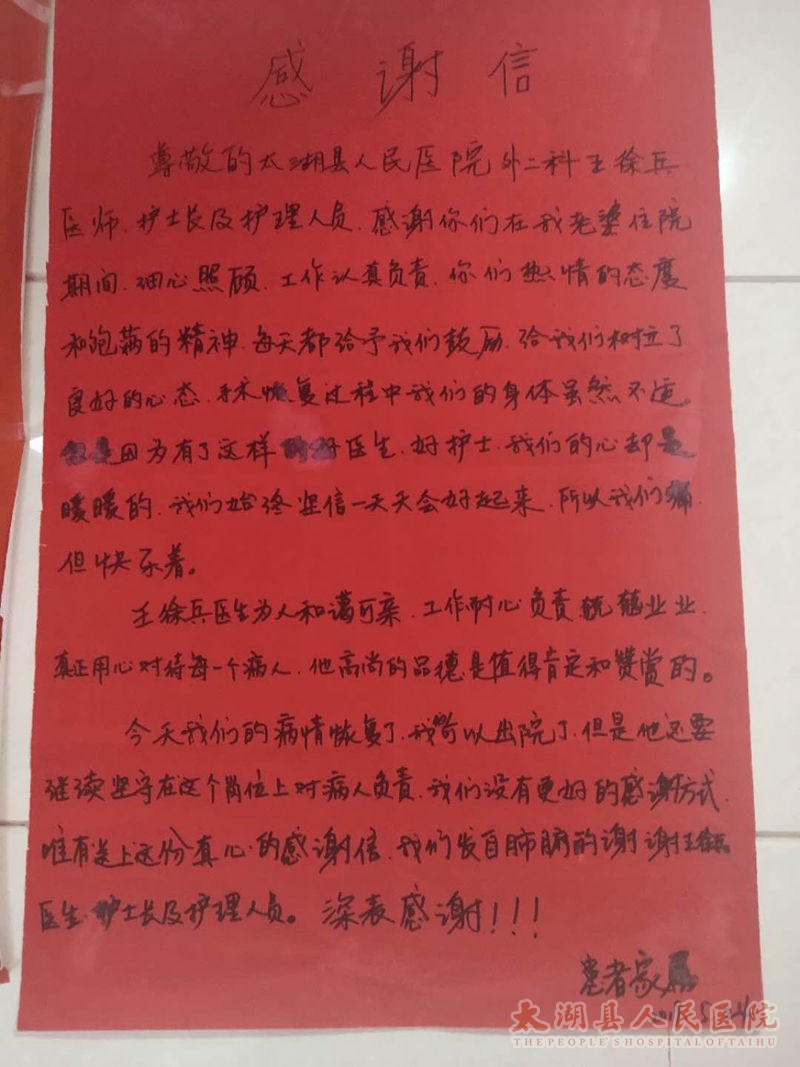 感谢信
尊敬的太湖县人民医院外二科王徐兵
医师、护士长及护理人员、感谢你们在我老婆住院
期间、细心照顾、工作认真负责、你们热情的态度
和饱满的精神、每天都给予我们鼓励、给我们树立了
良好的心态、手术恢复过程中我们的身体虽然不适。
但是因为有了这样的好医生、好护士、我们的心却是
暖暖的、我们始终坚信一天天会好起来、所以我们痛
但快乐着。
王徐兵医生为人和蔼可亲、工作耐心负责兢兢业业、
真正用心对待每一个病人、他高尚的品德是值得肯定和赞赏的。
今天我们的病情恢复了、我可以出院了、但是他还要
继续坚守在这个岗位上对病人负责、我们没有更好的感谢方式、
唯有送上这份真心的感谢信、我们发自肺腑的谢谢王徐兵
医生、护士长及护理人员。深表感谢!!!
患者家属
太湖县人民医院
THE PEOPLE'S HOSPITAL OF TAIHU